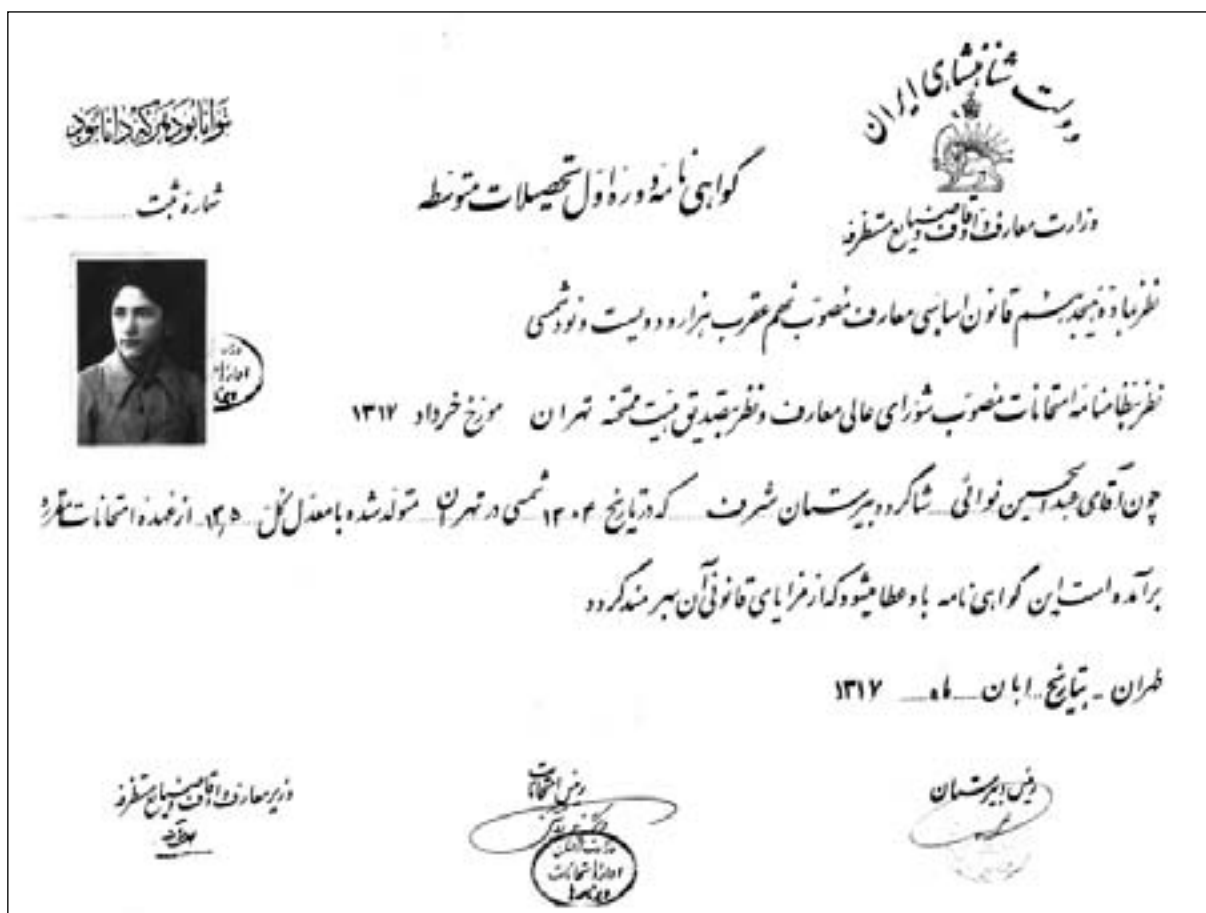 دولت شاهنشاهی ایران
وزارت معارف و اوقاف و صنایع مستظرفه
گواهی نامه دوره اول تحصیلات متوسطه
توانا بود هر که دانا بود
شماره ثبت
نظر بماده هیجدهم قانون اساسی معارف مصوب نهم عقرب هزار و دویست و نود شمسی
نظر بنظامنامه امتحانات مصوب شورای عالی معارف و نظر بتصدیق هیئت ممتحنه تهران مورخ خرداد ۱۳۱۷
چون آقای عبدالحسین نوائی شاگرد دبیرستان شرف که در تاریخ ۱۳۰۴ شمسی در تهران متولد شده با معدل کل از عهده امتحانات مقرره
برآمده است این گواهی نامه باو عطا میشود که از مزایای قانونی آن بهرمند گردد
طهران - بتاریخ ابان ماه ۱۳۱۷
رئیس دبیرستان
رئیس امتحانات
وزیر معارف و اوقاف و صنایع مستظرفه
اداره امتحانات